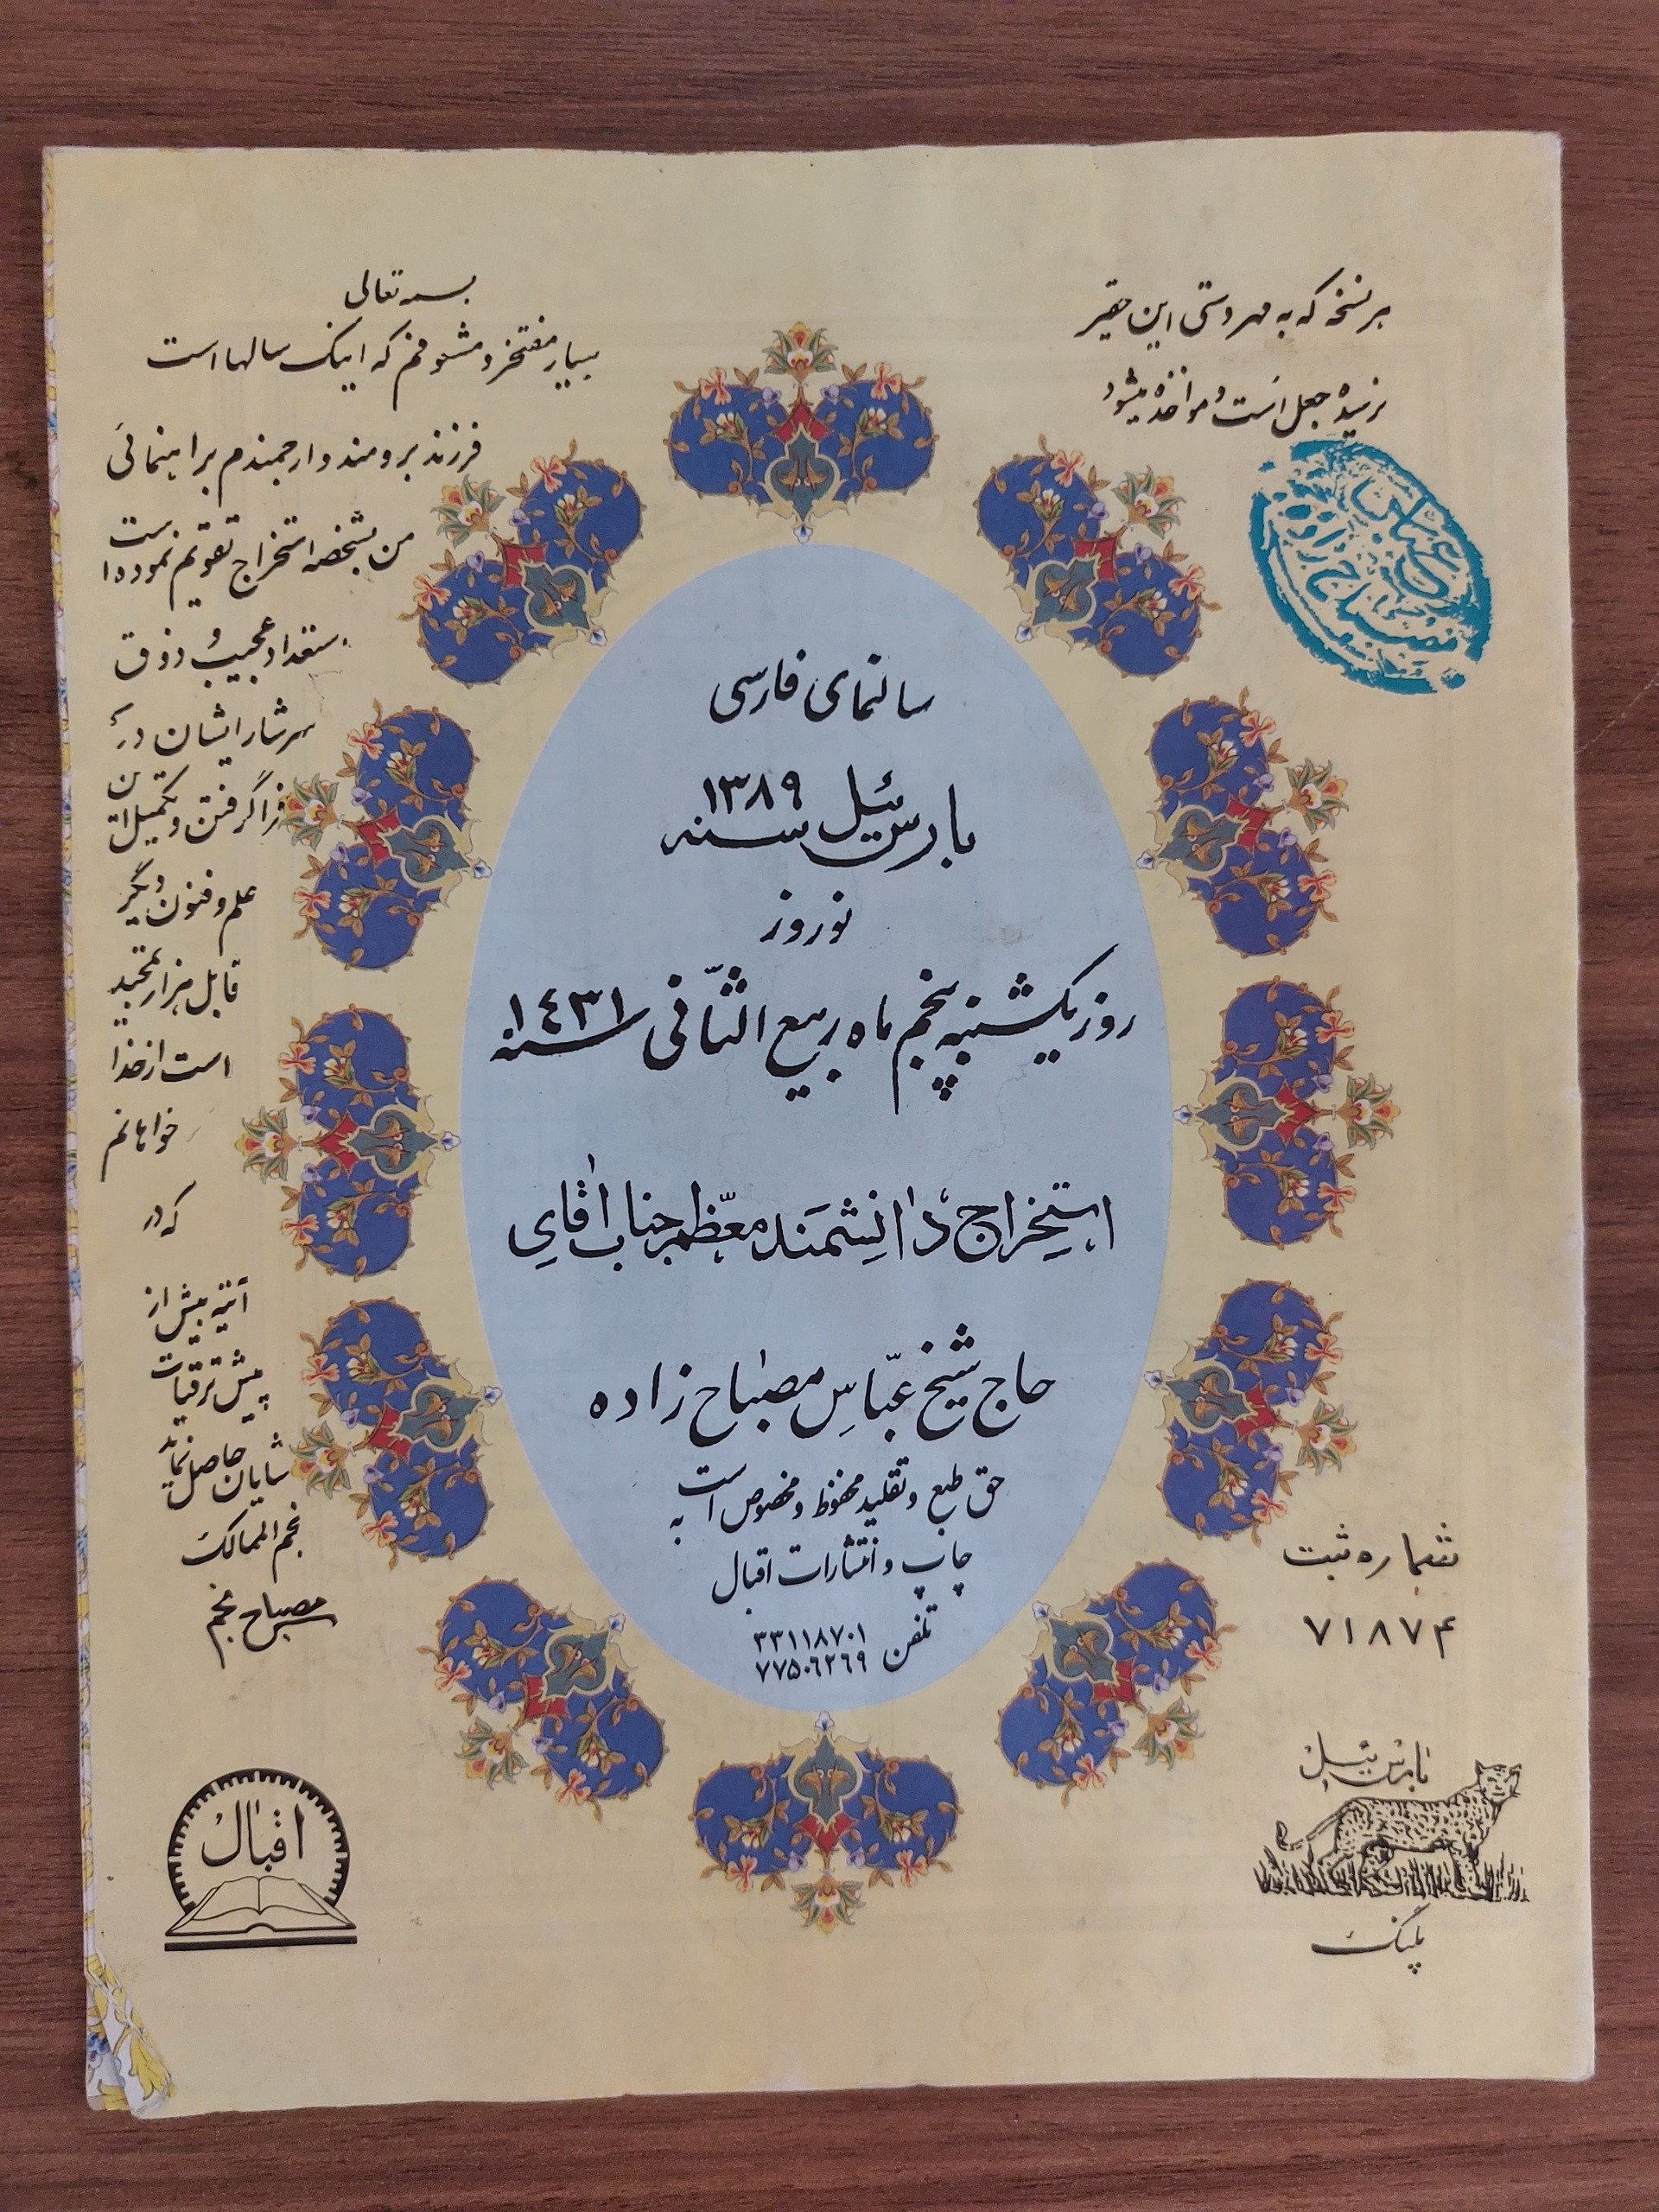 هر نسخه که به مهر دستی این حقیر
نرسیده جعل است و مؤاخذه میشود
عباس
مصباح زاده
بسمه تعالی
بسیار مفتخر و مشعوفم که اینک سالها است
فرزند برومند و ارجمندم براهنمائی
من بشخصه استخراج تقویم نموده است
استعداد عجیب و ذوق
سرشار ایشان در
فرا گرفتن و تکمیل این
علم و فنون دیگر
قابل هزار تمجید
است از خدا
خواهانم
که در
آتیه بیش از
پیش ترقیات
شایان حاصل نماید
نجم الممالک
مصباح منجم
سالنمای فارسی
بارس ئیل سنه ۱۳۸۹
نوروز
روز یکشنبه پنجم ماه ربیع الثّانی سنه ۱٤۳۱
استخراج دانشمند معظّم جناب آقای
حاج شیخ عبّاس مصباح زاده
حق طبع و تقلید محفوظ و مخصوص است به
چاپ و انتشارات اقبال
تلفن ۳۳۱۱۸۷۰۱
۷۷۵۰٦۲٦۹
شماره ثبت
۷۱۸۷۴
بارس ئیل
پلنگ
اقبال